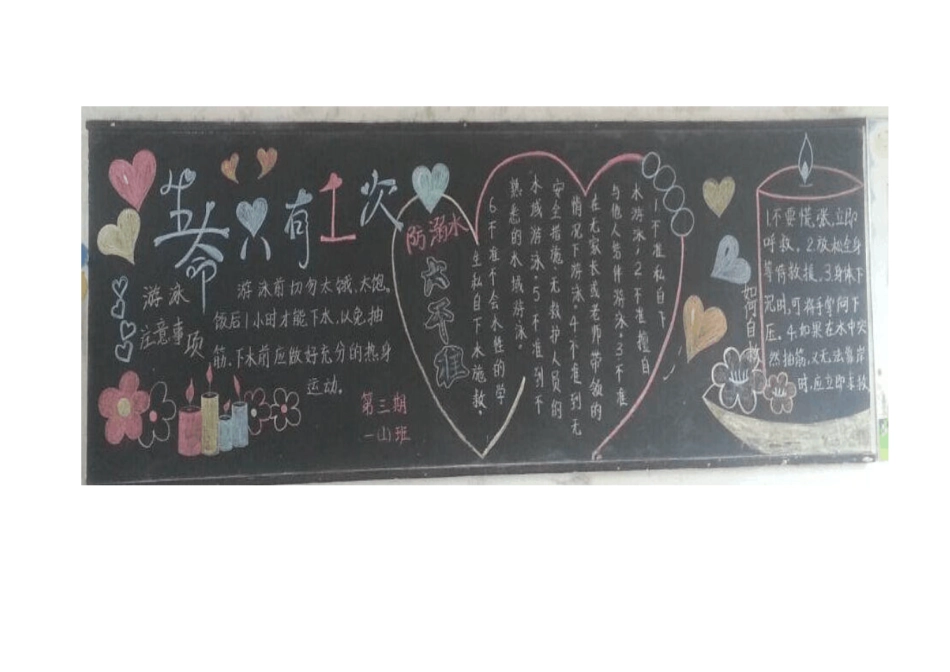 生命只有1次
游泳
注意事项
游泳前切勿太饿、太饱。
饭后1小时才能下水,以免抽
筋、下水前应做好充分的热身
运动。
第三期
一山班
防溺水
六不准
1不准私自下
水游泳,2不准擅自
与他人结伴游泳。3不准
在无家长或老师带领的
情况下游泳。4不准到无
安全措施、无救护人员的
水域游泳。5不准到不
熟悉的水域游泳。
6不准不会水性的学
生私自下水施救。
如何自救
1不要慌张,立即
呼救。2.放松全身
等待救援。3.身体下
沉时,可将手掌向下
压。4.如果在水中突
然抽筋,又无法靠岸
时,应立即求救